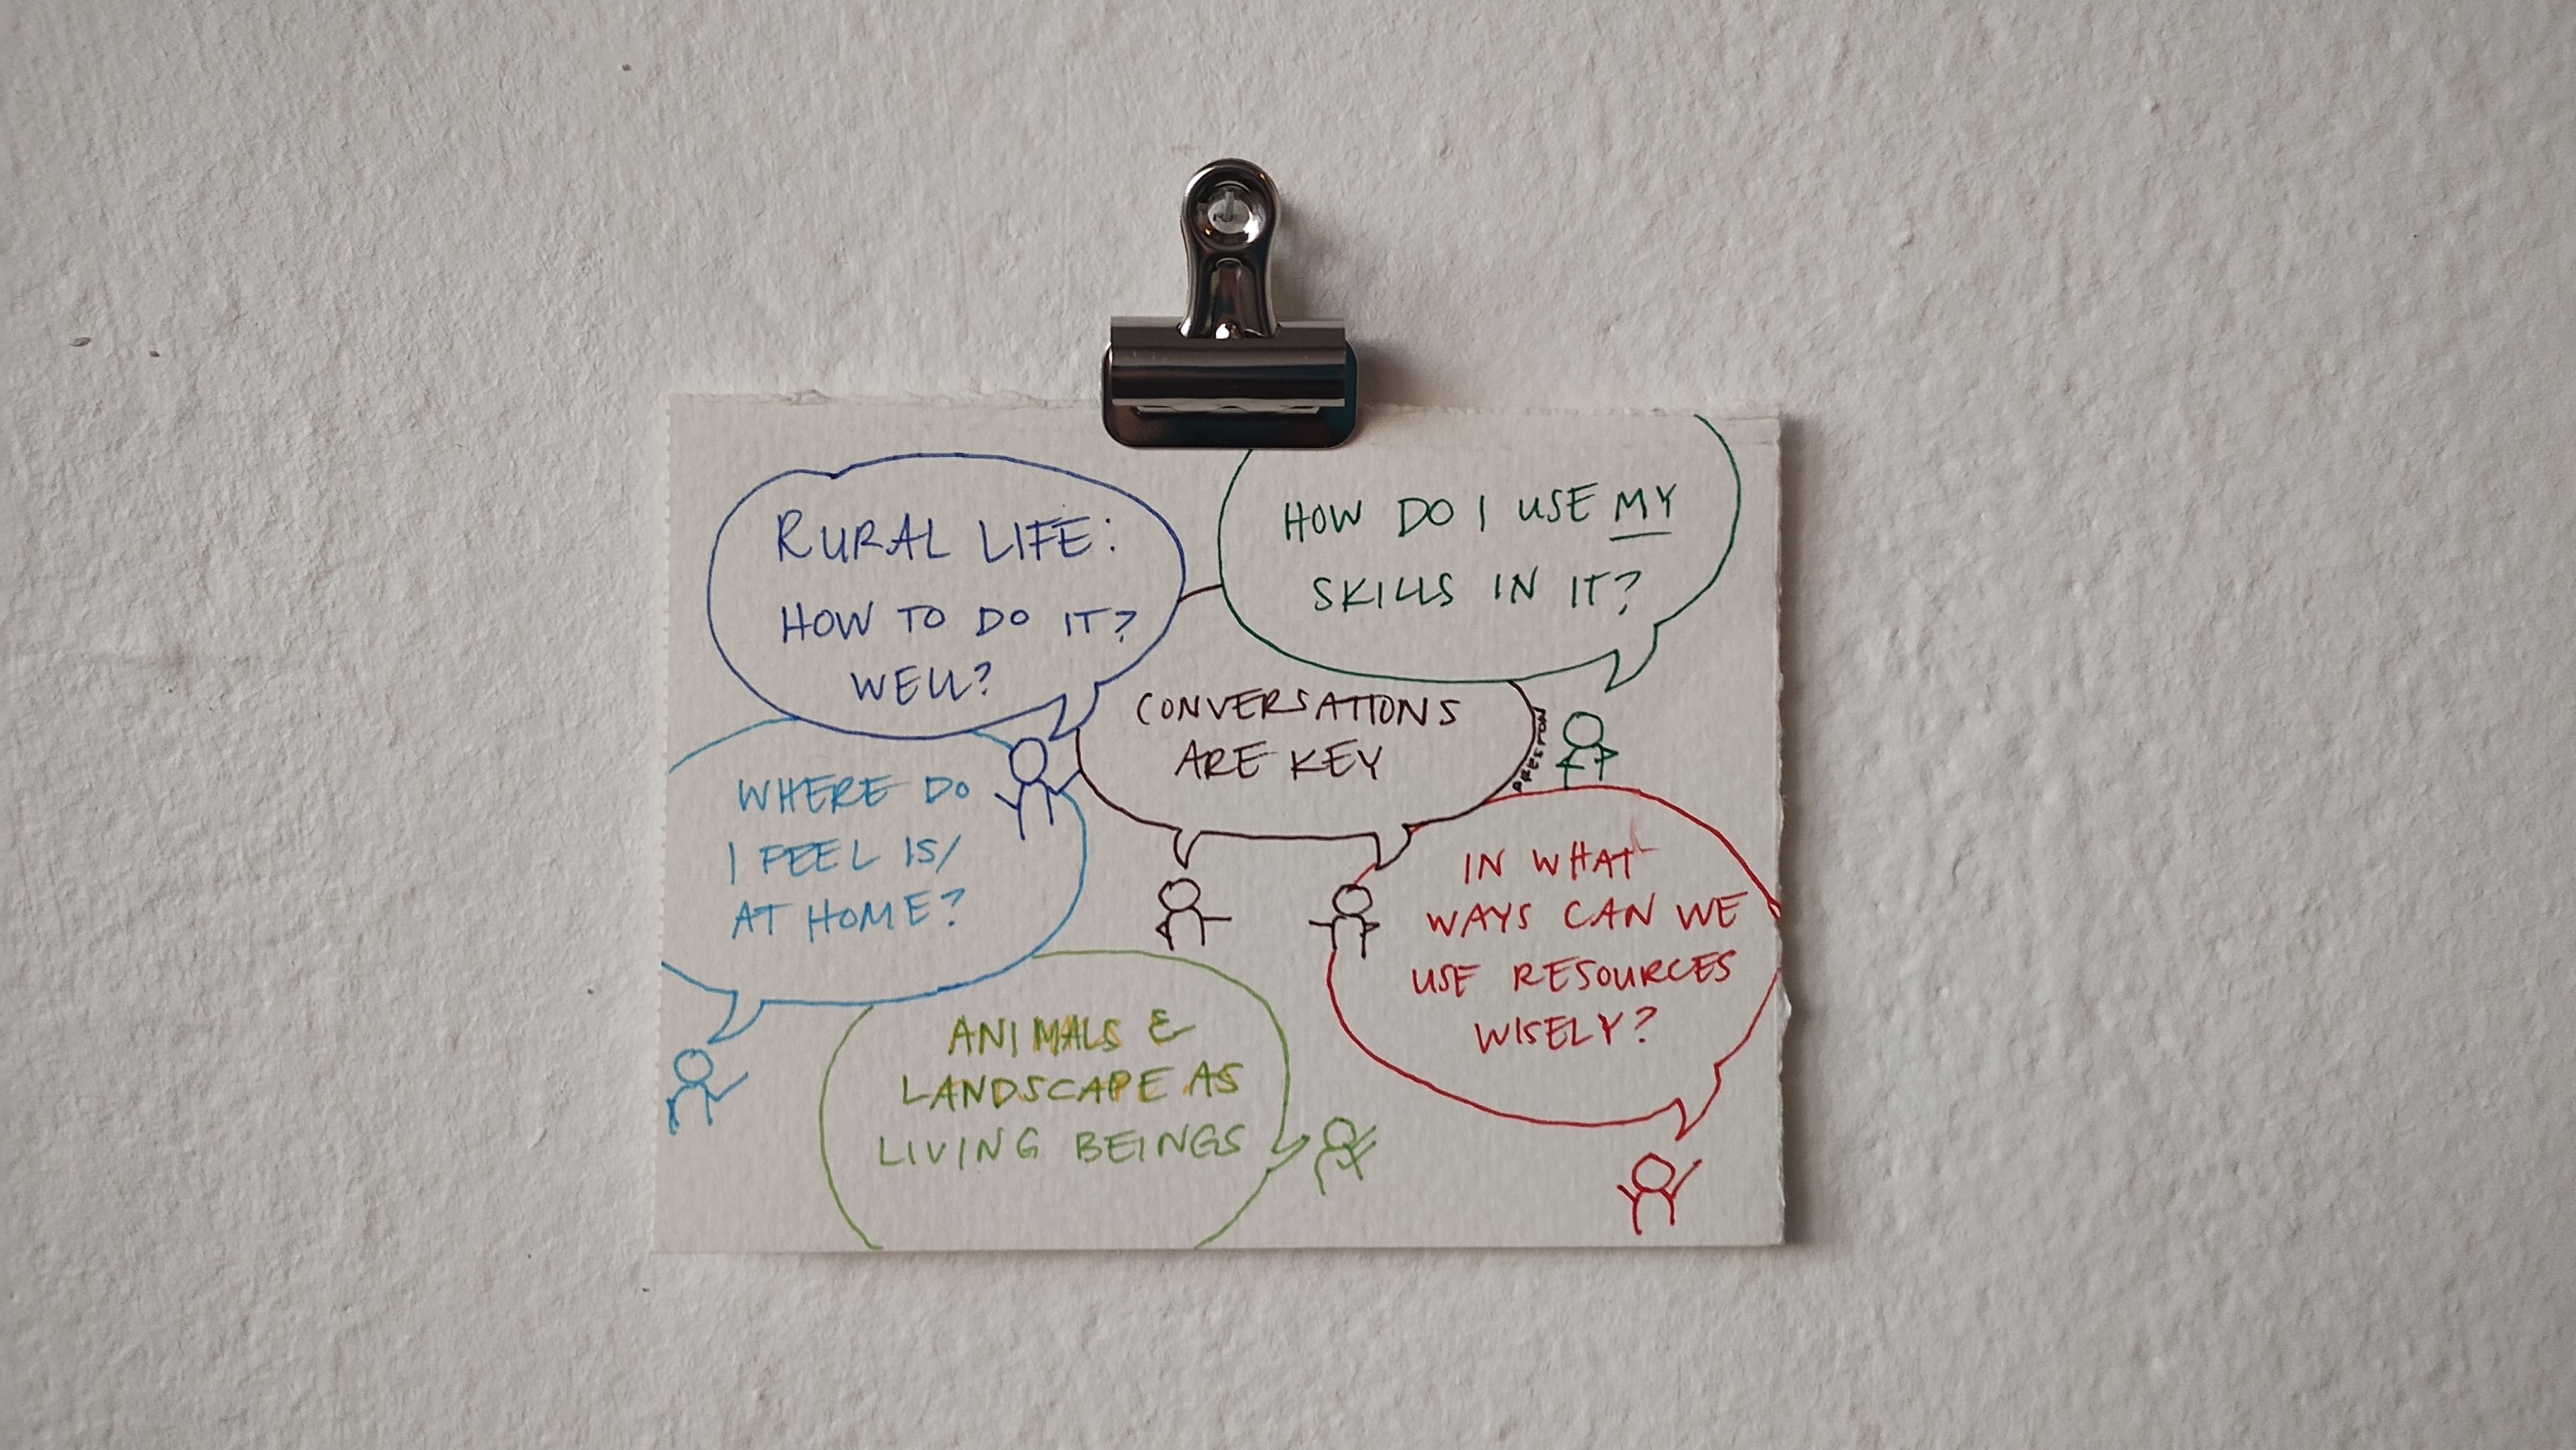 RURAL LIFE:
HOW TO DO IT?
WELL?
HOW DO I USE MY
SKILLS IN IT?
CONVERSATIONS
ARE KEY
PRESTON
WHERE DO
I FEEL IS/
AT HOME?
IN WHAT
WAYS CAN WE
USE RESOURCES
WISELY?
ANIMALS &
LANDSCAPE AS
LIVING BEINGS